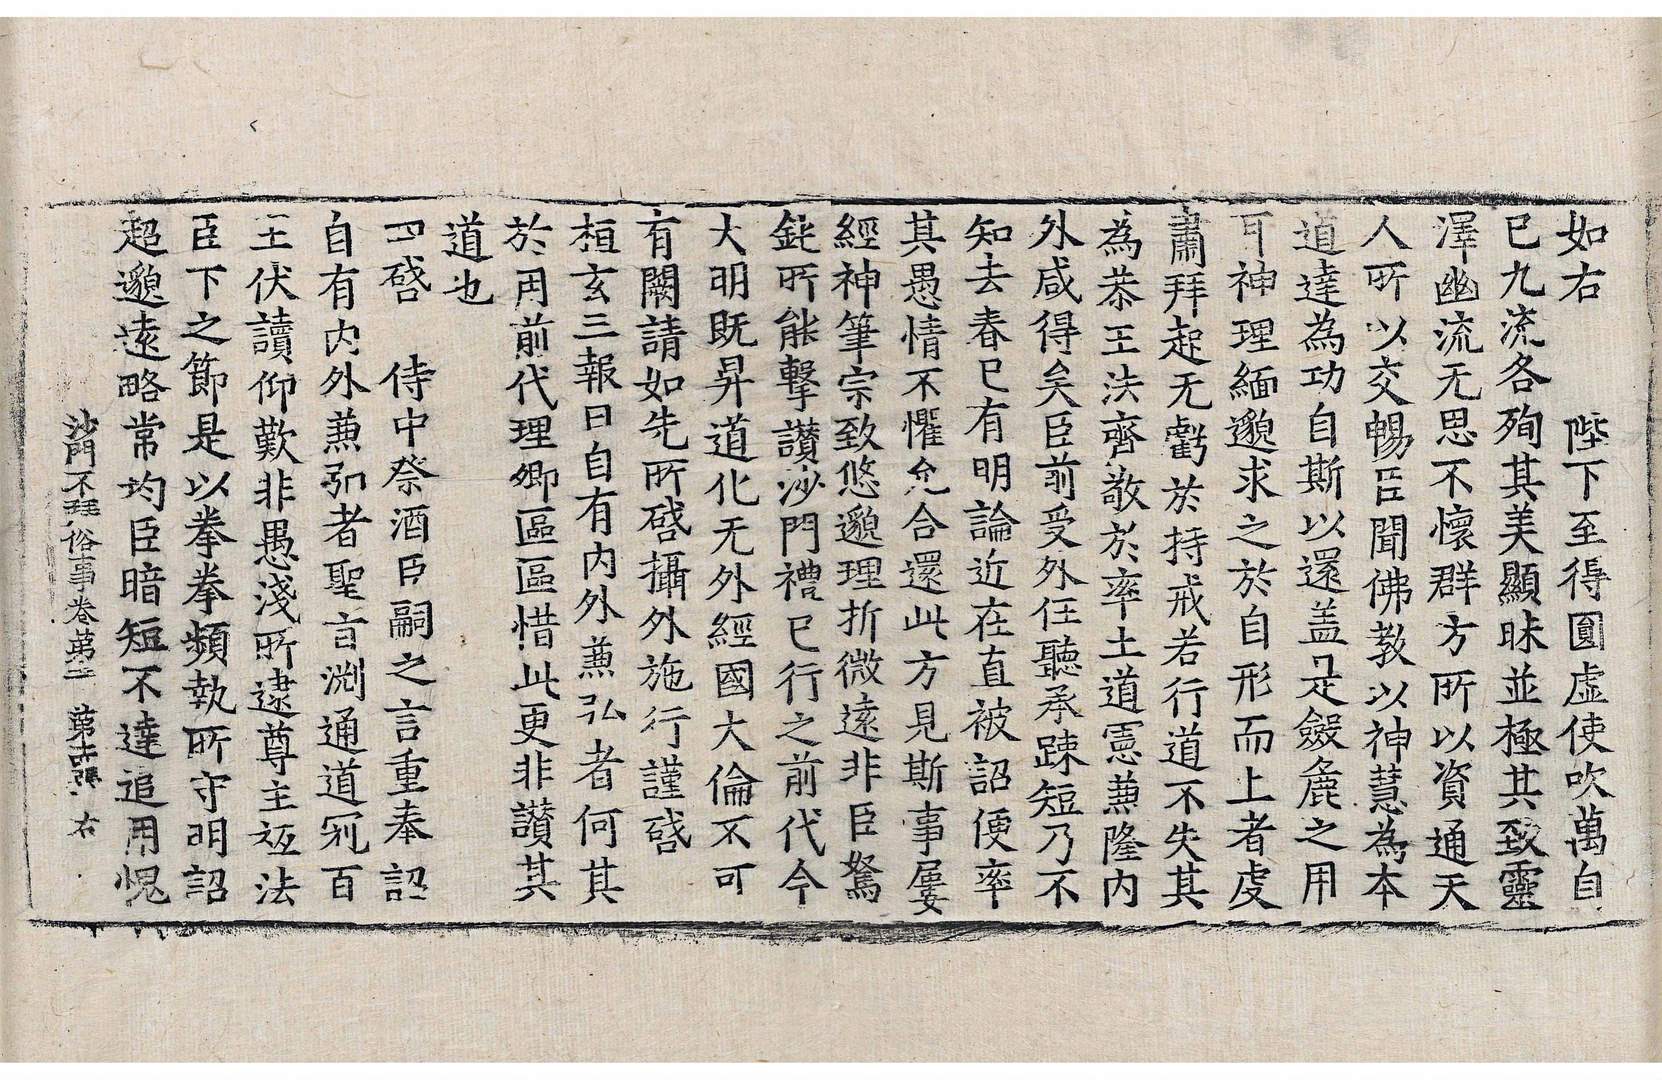 如右　　陛下至得圓虛使吹萬自
已九流各殉其美顯昧並極其致靈
澤幽流无思不懷群方所以資通天
人所以交暢臣聞佛教以神慧為本
道達為功自斯以還盖是歛麁之用
耳神理緬邈求之於自形而上者虔
肅拜起无虧於持戒若行道不失其
為恭王法齊敬於率土道憲兼隆內
外咸得矣臣前受外任聽承踈短乃不
知去春已有明論近在直被詔便率
其愚情不懼允合還此方見斯事屢
經神筆宗致悠邈理折微遠非臣駑
鈍所能擊讃沙門禮已行之前代今
大明既昇道化无外經國大倫不可
有闕請如先所啓攝外施行謹啓
桓玄三報曰自有內外兼弘者何其
於用前代理卿區區惜此更非讃其
道也
四啓　侍中祭酒臣嗣之言重奉詔
自有內外兼弘者聖旨淵通道冠百
王伏讀仰歎非愚淺所逮尊主祗法
臣下之節是以拳拳頻執所守明詔
超邈遠略常均臣暗短不達追用愧
沙門不拜俗事卷第二　第十五張　右